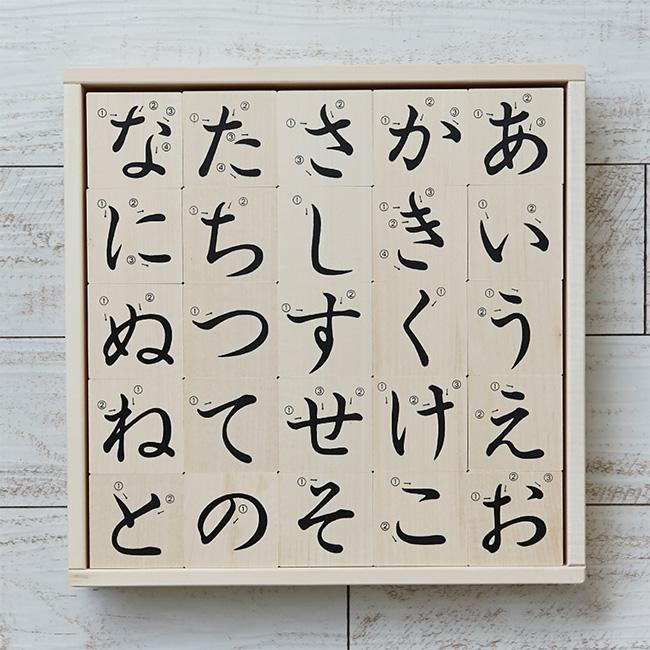 あいうえお
かきくけこ
さしすせそ
たちつての
なにぬねと